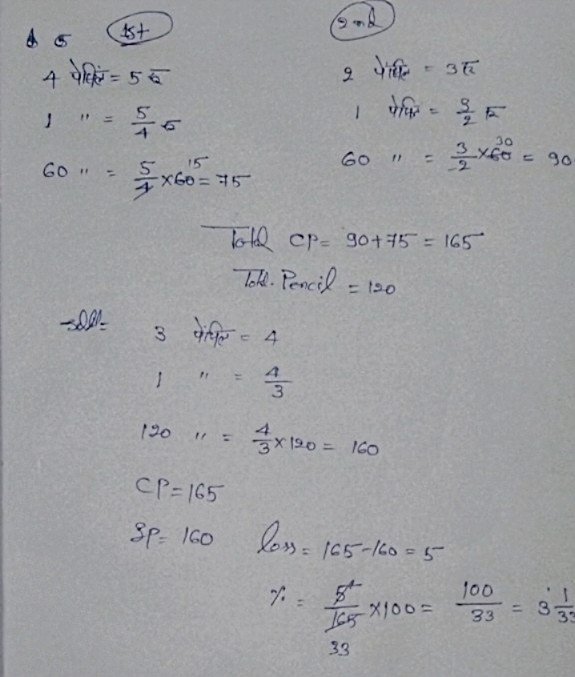 5 1st
4 पेंसिल = 5 रू
1 " = 5/4 रू
60 " = 5/4 × 60 15 = 75
2nd
2 पेंसिल = 3 रू
1 पेंसिल = 3/2 रू
60 " = 3/2 × 60 30 = 90
Total CP = 90+75 = 165
Total. Pencil = 120
sell =
3 पेंसिल = 4
1 " = 4/3
120 " = 4/3 × 120 = 160
CP = 165
SP = 160 loss = 165-160 = 5
% = 5/165 × 100 = 100/33 = 3 1/33
33